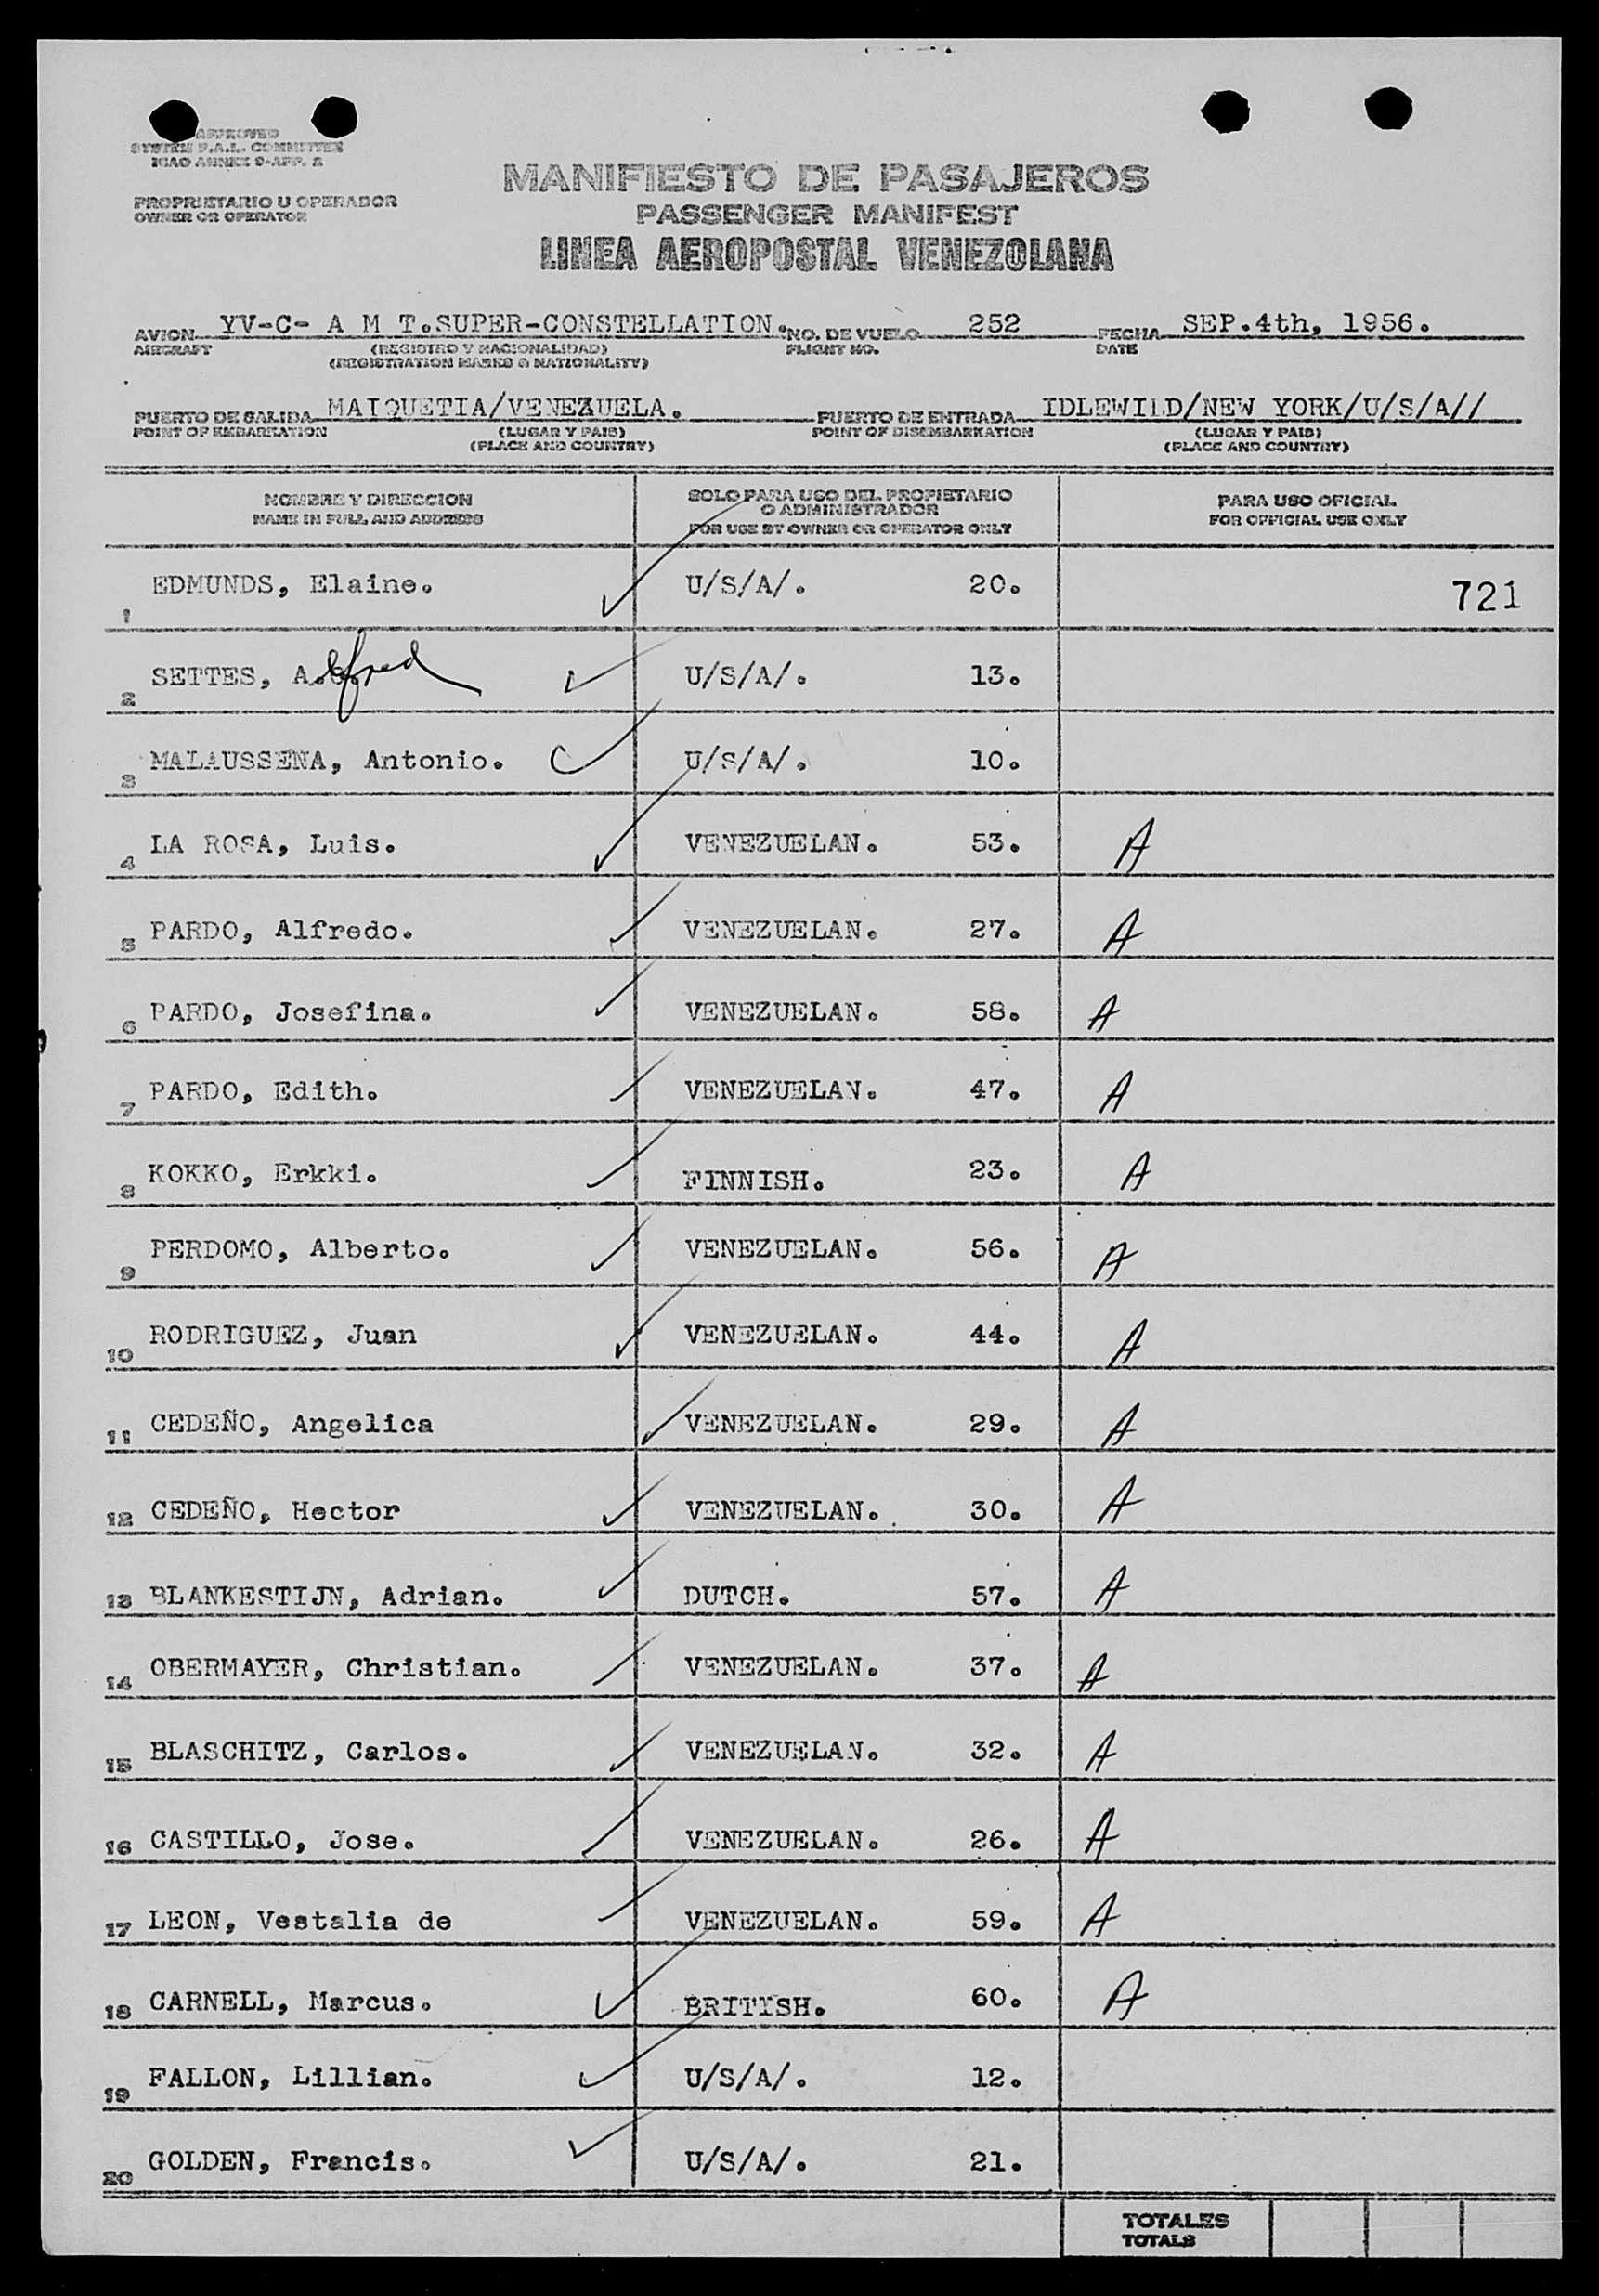 APPROVED
SYSTEM F.A.L. COMMITTEE
ICAO ANNEX 9-APP. 2
MANIFIESTO DE PASAJEROS
PROPRIETARIO U OPERADOR
OWNER OR OPERATOR
PASSENGER MANIFEST
LINEA AEROPOSTAL VENEZOLANA
AVION YV-C- A M T.SUPER-CONSTELLATION. NO. DE VUELO 252 FECHA SEP.4th, 1956.
AIRCRAFT (REGISTRO Y NACIONALIDAD) FLIGHT NO. DATE
(REGISTRATION MARKS & NATIONALITY)
PUERTO DE SALIDA MAIQUETIA/VENEZUELA. PUERTO DE ENTRADA IDLEWILD/NEW YORK/U/S/A//
POINT OF EMBARKATION (LUGAR Y PAIS) POINT OF DISEMBARKATION (LUGAR Y PAIS)
(PLACE AND COUNTRY) (PLACE AND COUNTRY)
NOMBRE Y DIRECCION SOLO PARA USO DEL PROPIETARIO PARA USO OFICIAL
O ADMINISTRADOR
NAME IN FULL AND ADDRESS FOR USE BY OWNER OR OPERATOR ONLY FOR OFFICIAL USE ONLY
1 EDMUNDS, Elaine. U/S/A/. 20. 721
2 SETTES, A. lfred U/S/A/. 13.
3 MALAUSSENA, Antonio. C U/S/A/. 10.
4 LA ROSA, Luis. VENEZUELAN. 53. A
5 PARDO, Alfredo. VENEZUELAN. 27. A
6 PARDO, Josefina. VENEZUELAN. 58. A
7 PARDO, Edith. VENEZUELAN. 47. A
8 KOKKO, Erkki. FINNISH. 23. A
9 PERDOMO, Alberto. VENEZUELAN. 56. A
10 RODRIGUEZ, Juan VENEZUELAN. 44. A
11 CEDEÑO, Angelica VENEZUELAN. 29. A
12 CEDEÑO, Hector VENEZUELAN. 30. A
13 BLANKESTIJN, Adrian. DUTCH. 57. A
14 OBERMAYER, Christian. VENEZUELAN. 37. A
15 BLASCHITZ, Carlos. VENEZUELAN. 32. A
16 CASTILLO, Jose. VENEZUELAN. 26. A
17 LEON, Vestalia de VENEZUELAN. 59. A
18 CARNELL, Marcus. BRITISH. 60. A
19 FALLON, Lillian. U/S/A/. 12.
20 GOLDEN, Francis. U/S/A/. 21.
TOTALES
TOTALS